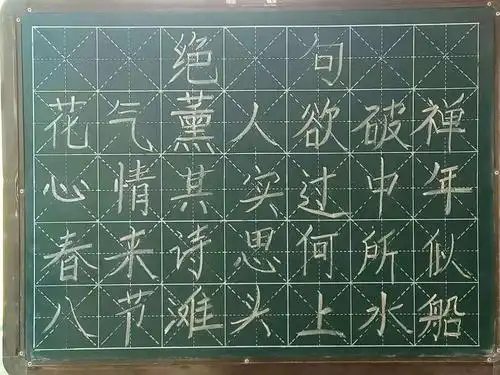 绝句
花气薰人欲破禅
心情其实过中年
春来诗思何所似
八节滩头上水船